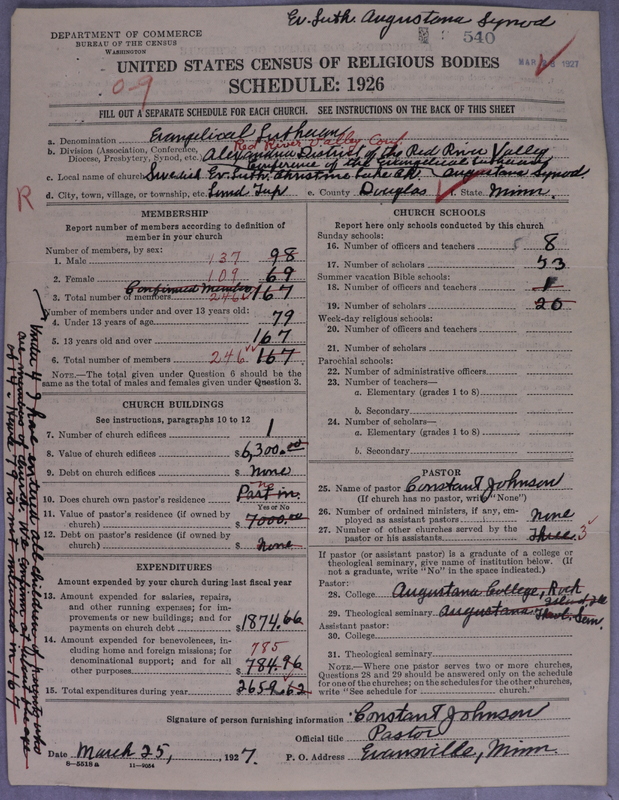 Ev. Luth. Augustana Synod
DEPARTMENT OF COMMERCE
BUREAU OF THE CENSUS
WASHINGTON
540
MAR 28 1927
UNITED STATES CENSUS OF RELIGIOUS BODIES
0-9
SCHEDULE: 1926
FILL OUT A SEPARATE SCHEDULE FOR EACH CHURCH. SEE INSTRUCTIONS ON THE BACK OF THIS SHEET
a. Denomination Evangelical Lutheran
Red River Valley Conf.
b. Division (Association, Conference, Diocese, Presbytery, Synod, etc.) Alexandria District of the Red River Valley
Conference of the Evangelical Lutheran
c. Local name of church Swedish Ev. Luth. Christine Lake Augustana Synod
R
d. City, town, village, or township, etc. Lund Twp e. County Douglas f. State Minn.
MEMBERSHIP
Report number of members according to definition of
member in your church
Number of members, by sex:
1. Male 137 98
2. Female 109 69
Confirmed Members
3. Total number of members 246 167
Number of members under and over 13 years old:
4. Under 13 years of age 79
5. 13 years old and over 167
6. Total number of members 246 167
NOTE.—The total given under Question 6 should be
same as the total of males and females given under Question 3.
CHURCH BUILDINGS
See instructions, paragraphs 10 to 12
7. Number of church edifices 1
8. Value of church edifices $6,300.00
9. Debt on church edifices $ None
10. Does church own pastor's residence Part in no
Yes or No
11. Value of pastor's residence (if owned by
church) $ 7000.00
12. Debt on pastor's residence (if owned by
church) $ None
EXPENDITURES
Amount expended by your church during last fiscal year
13. Amount expended for salaries, repairs,
and other running expenses; for im-
provements or new building; and for
payments on church debt $1874.66
14. Amount expended for benevolences, in-
cluding home and foreign missions; for
denominational support; and for all
other purposes 785 $ 784.96
15. Total expenditures during year $ 2659.62
CHURCH SCHOOLS
Report here only schools conducted by this church
Sunday schools:
16. Number of officers and teachers 8
17. Number of scholars 53
Summer vacation Bible schools:
18. Number of officers and teachers 1
19. Number of scholars 20
Week-day religious schools:
20. Number of officers and teachers
21. Number of scholars
Parochial schools:
22. Number of administrative officers
23. Number of teachers—
a. Elementary (grades 1 to 8)
b. Secondary
24. Number of scholars—
a. Elementary (grades 1 to 8)
b. Secondary
PASTOR
25. Name of pastor Constant Johnson
(If church has no pastor, write "None")
26. Number of ordained ministers, if any, em-
ployed as assistant pastors None
27. Number of other churches served by the
pastor or his assistants Three 3
If pastor (or assistant pastor) is a graduate of a college or
theological seminary, give name of institution below. (If
not a graduate, write "No" in the space indicated.)
Pastor:
28. College Augustana College, Rock
Island Ill
29. Theological seminary Augustana Theol. Sem.
Assistant pastor:
30. College
31. Theological seminary
NOTE.—Where one pastor serves two or more churches,
Questions 28 and 29 should be answered only on the schedule
for one of the churches; on the schedules for the other churches,
write "See schedule for church."
Signature of person furnishing information Constant Johnson
Official title Pastor
Date March 25, 1927. P. O. Address Evansville, Minn.
8—5518 a 11—9054
Under 4 I have entered all children of parents who
are members of church. We confirm at about the age
of 14. Hence 79 is not included in 167